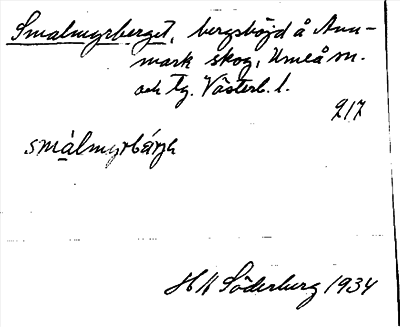 Smalmyrberget, bergshöjd å Ann-
mark skog, Umeå sn.
och tg. Västerb. l.
217
smàlmyrbárjə
H N Söderberg 1934